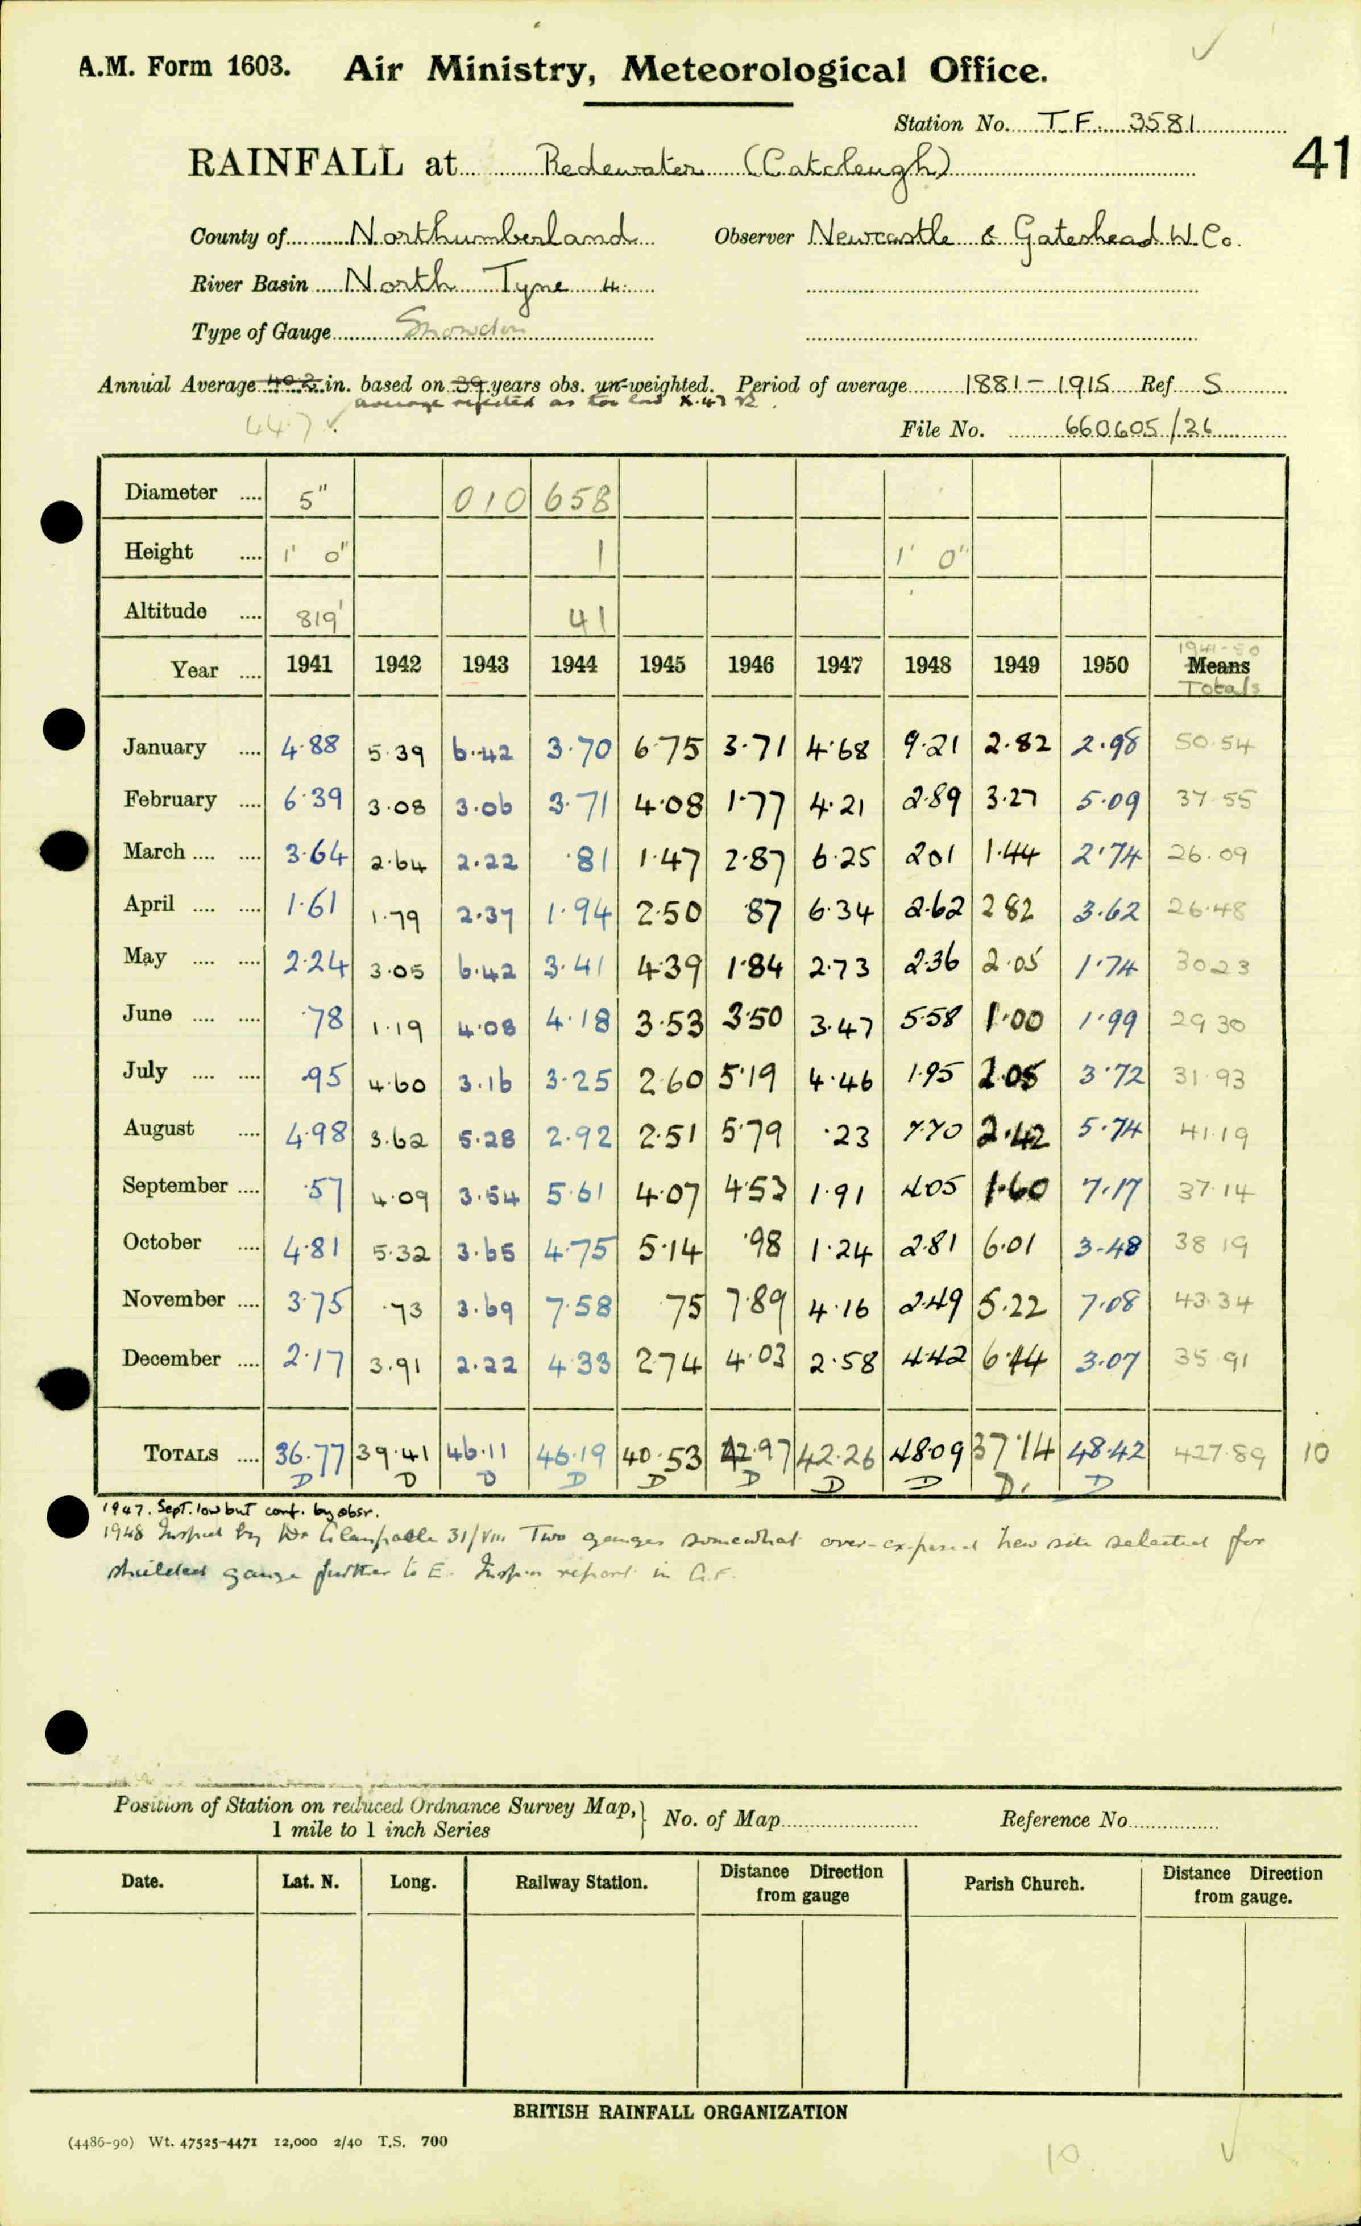 A.M. Form 1603. Air Ministry, Meteorological Office.
Station No. T.F. 3581
41
RAINFALL at Redewater (Catcleugh)
County of Northumberland Observer Newcastle & Gateshead W. Co.
River Basin North Tyne 4.
Type of Gauge Snowdon
Annual Average 40.2 in. based on 39 years obs. un-weighted. Period of average 1881-1915 Ref S
average rejected as too low
44.7
File No. 660605/26
Diameter .... 5" 010 658
Height .... 1' 0" 1 1' 0"
Altitude .... 819' 41
1941-50
Year .... 1941 1942 1943 1944 1945 1946 1947 1948 1949 1950 Means
Totals
January .... 4.88 5.39 6.42 3.70 6.75 3.71 4.68 9.21 2.82 2.98 50.54
February .... 6.39 3.08 3.06 3.71 4.08 1.77 4.21 2.89 3.27 5.09 37.55
March .... .... 3.64 2.64 2.22 .81 1.47 2.87 6.25 2.01 1.44 2.74 26.09
April .... .... 1.61 1.79 2.37 1.94 2.50 .87 6.34 2.62 2.82 3.62 26.48
May .... .... 2.24 3.05 6.42 3.41 4.39 1.84 2.73 2.36 2.05 1.74 30.23
June .... .... .78 1.19 4.08 4.18 3.53 3.50 3.47 5.58 1.00 1.99 29.30
July .... .... .95 4.60 3.16 3.25 2.60 5.19 4.46 1.95 2.05 3.72 31.93
August .... 4.98 3.62 5.28 2.92 2.51 5.79 .23 7.70 2.42 5.74 41.19
September .... .57 4.09 3.54 5.61 4.07 4.53 1.91 4.05 1.60 7.17 37.14
October .... 4.81 5.32 3.65 4.75 5.14 .98 1.24 2.81 6.01 3.48 38.19
November .... 3.75 .73 3.69 7.58 .75 7.89 4.16 2.49 5.22 7.08 43.34
December .... 2.17 3.91 2.22 4.33 2.74 4.03 2.58 4.42 6.44 3.07 35.91
TOTALS .... 36.77 39.41 46.11 45.19 40.53 42.97 42.26 48.09 37.14 48.42 427.89 10
D D D D D D D D D. D
1947. Sept. low but conf. by obsr.
1948 Inspd by Dr Glasspoole 31/VIII Two gauges somewhat over-exposed new site selected for
shielded gauge further to E. Inspn report in G.F.
Position of Station on reduced Ordnance Survey Map, 1 mile to 1 inch Series No. of Map Reference No.
Date. Lat. N. Long. Railway Station. Distance Direction from gauge Parish Church. Distance Direction from gauge.
BRITISH RAINFALL ORGANIZATION
(4486-90) Wt. 47525-4471 12,000 2/40 T.S. 700
10